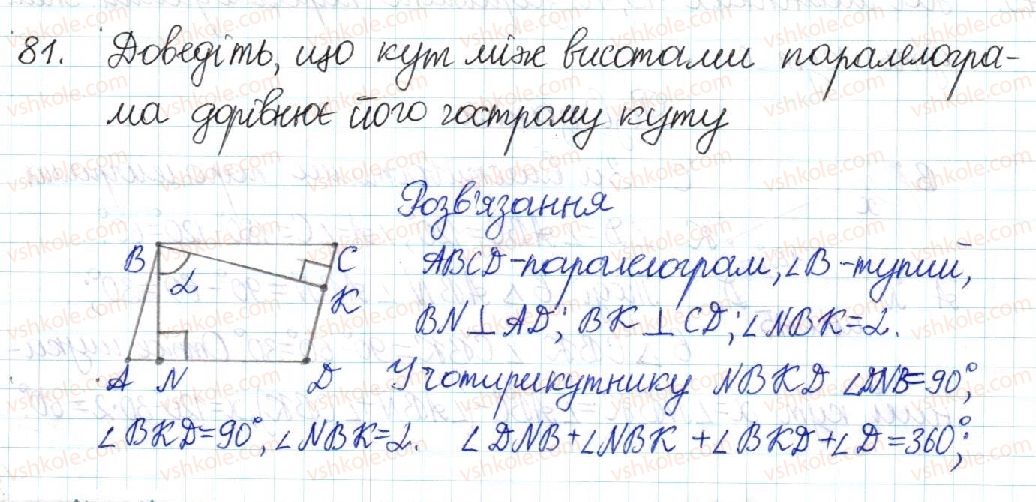 81. Доведіть, що кут між висотами паралелогра-
ма дорівнює його гострому куту
Розв'язання
B C
α
K
A N D
ABCD-паралелограм, ∠B-тупий,
BN⊥AD; BK⊥CD; ∠NBK=α.
У чотирикутнику NBKD ∠DNB=90°;
∠BKD=90°, ∠NBK=α. ∠DNB+∠NBK+∠BKD+∠D=360°;
vshkole.com